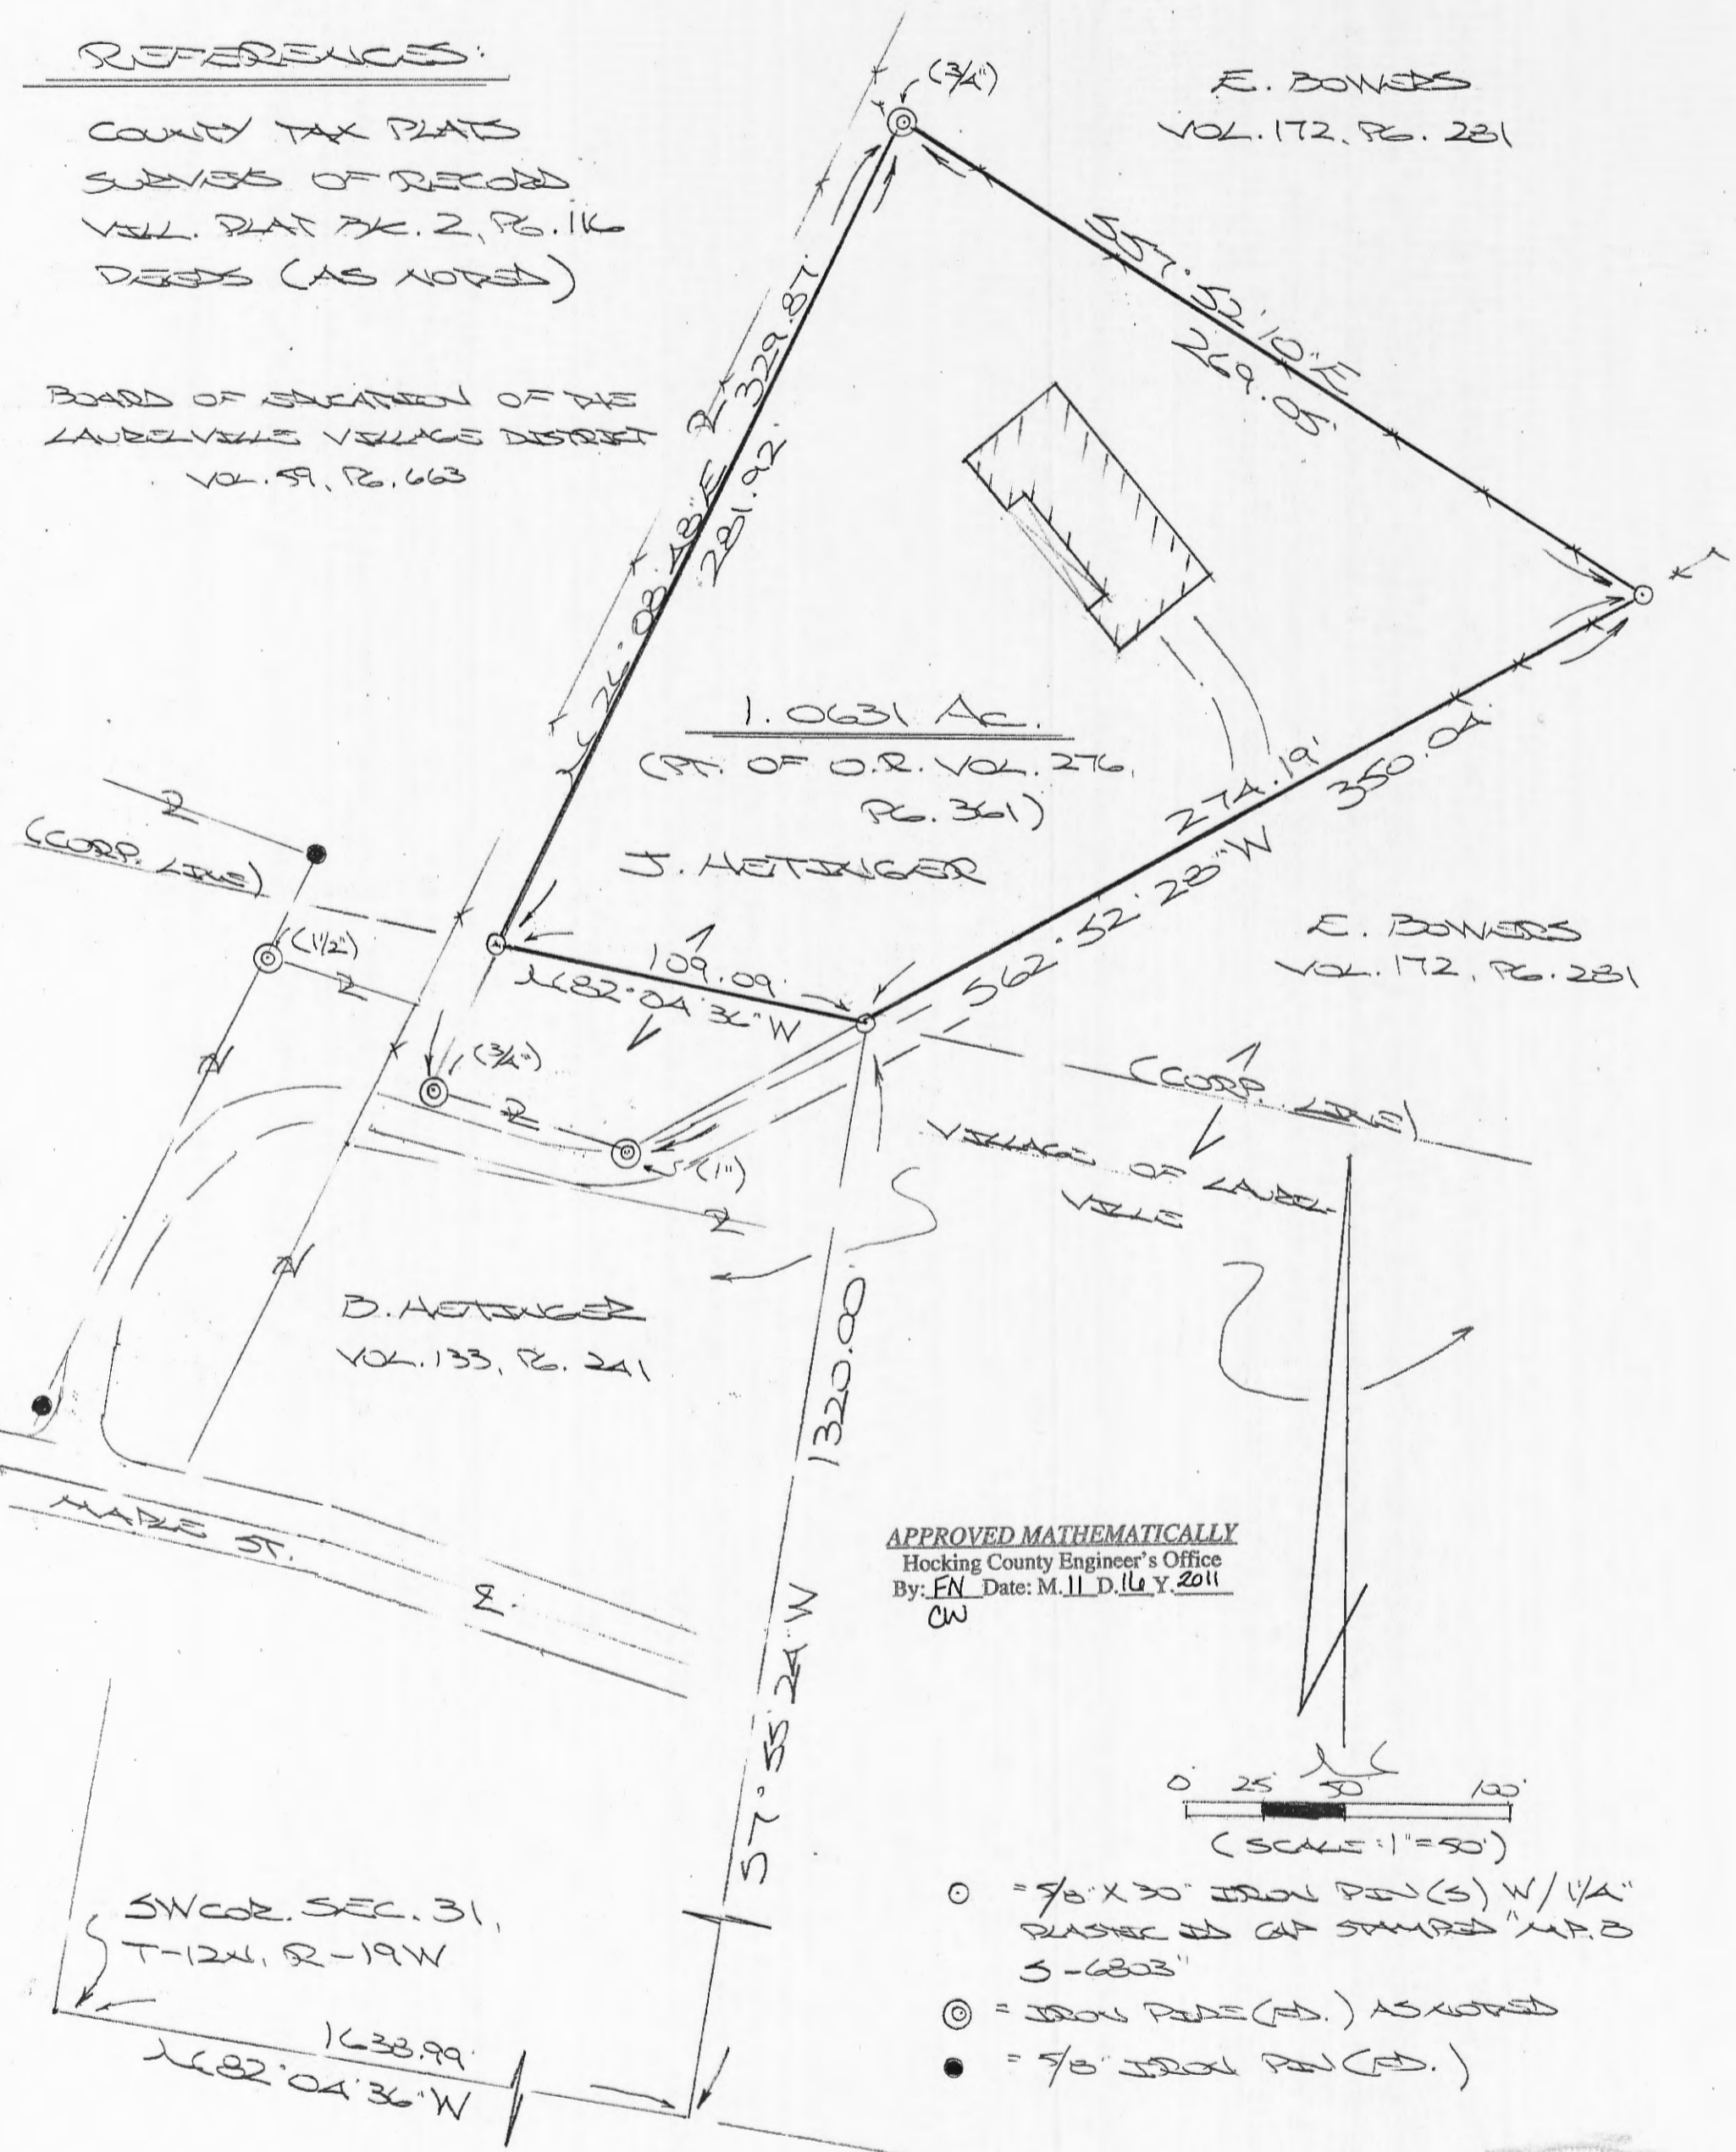 REFERENCES:
COUNTY TAX PLATS
SURVEYS OF RECORD
VILL. PLAT BK. 2, PG. 116
DEEDS (AS NOTED)
BOARD OF EDUCATION OF THE
LAURELVILLE VILLAGE DISTRICT
VOL. 59, PG. 663
(3/4")
E. BOWERS
VOL. 172, PG. 231
S57°52'10"E
269.05'
N26°08'48"E R 329.87'
281.92'
1.0631 AC.
(PT. OF O.R. VOL. 276,
PG. 361)
J. HETTINGER
274.19'
350.04'
S62°52'28"W
E. BOWERS
VOL. 172, PG. 231
R
(CORP. LINE)
(1 1/2")
R
109.09'
N82°04'36"W
(3/4")
R
(1")
R
(CORP. LINE)
VILLAGE OF LAUREL-
VILLE
B. HETTINGER
VOL. 133, PG. 241
1320.00'
S7°55'24"W
MAPLE ST.
APPROVED MATHEMATICALLY
Hocking County Engineer's Office
By: FN Date: M. 11 D. 16 Y. 2011
CW
N
0' 25' 50' 100'
(SCALE: 1"=50')
SW COR. SEC. 31,
T-12N, R-19W
1638.99'
N82°04'36"W
= 5/8" X 30" IRON PIN(S) W/ 1 1/4"
PLASTIC ID CAP STAMPED "M.P.B
S-6803"
= IRON PIPE (FD.) AS NOTED
= 5/8" IRON PIN (FD.)